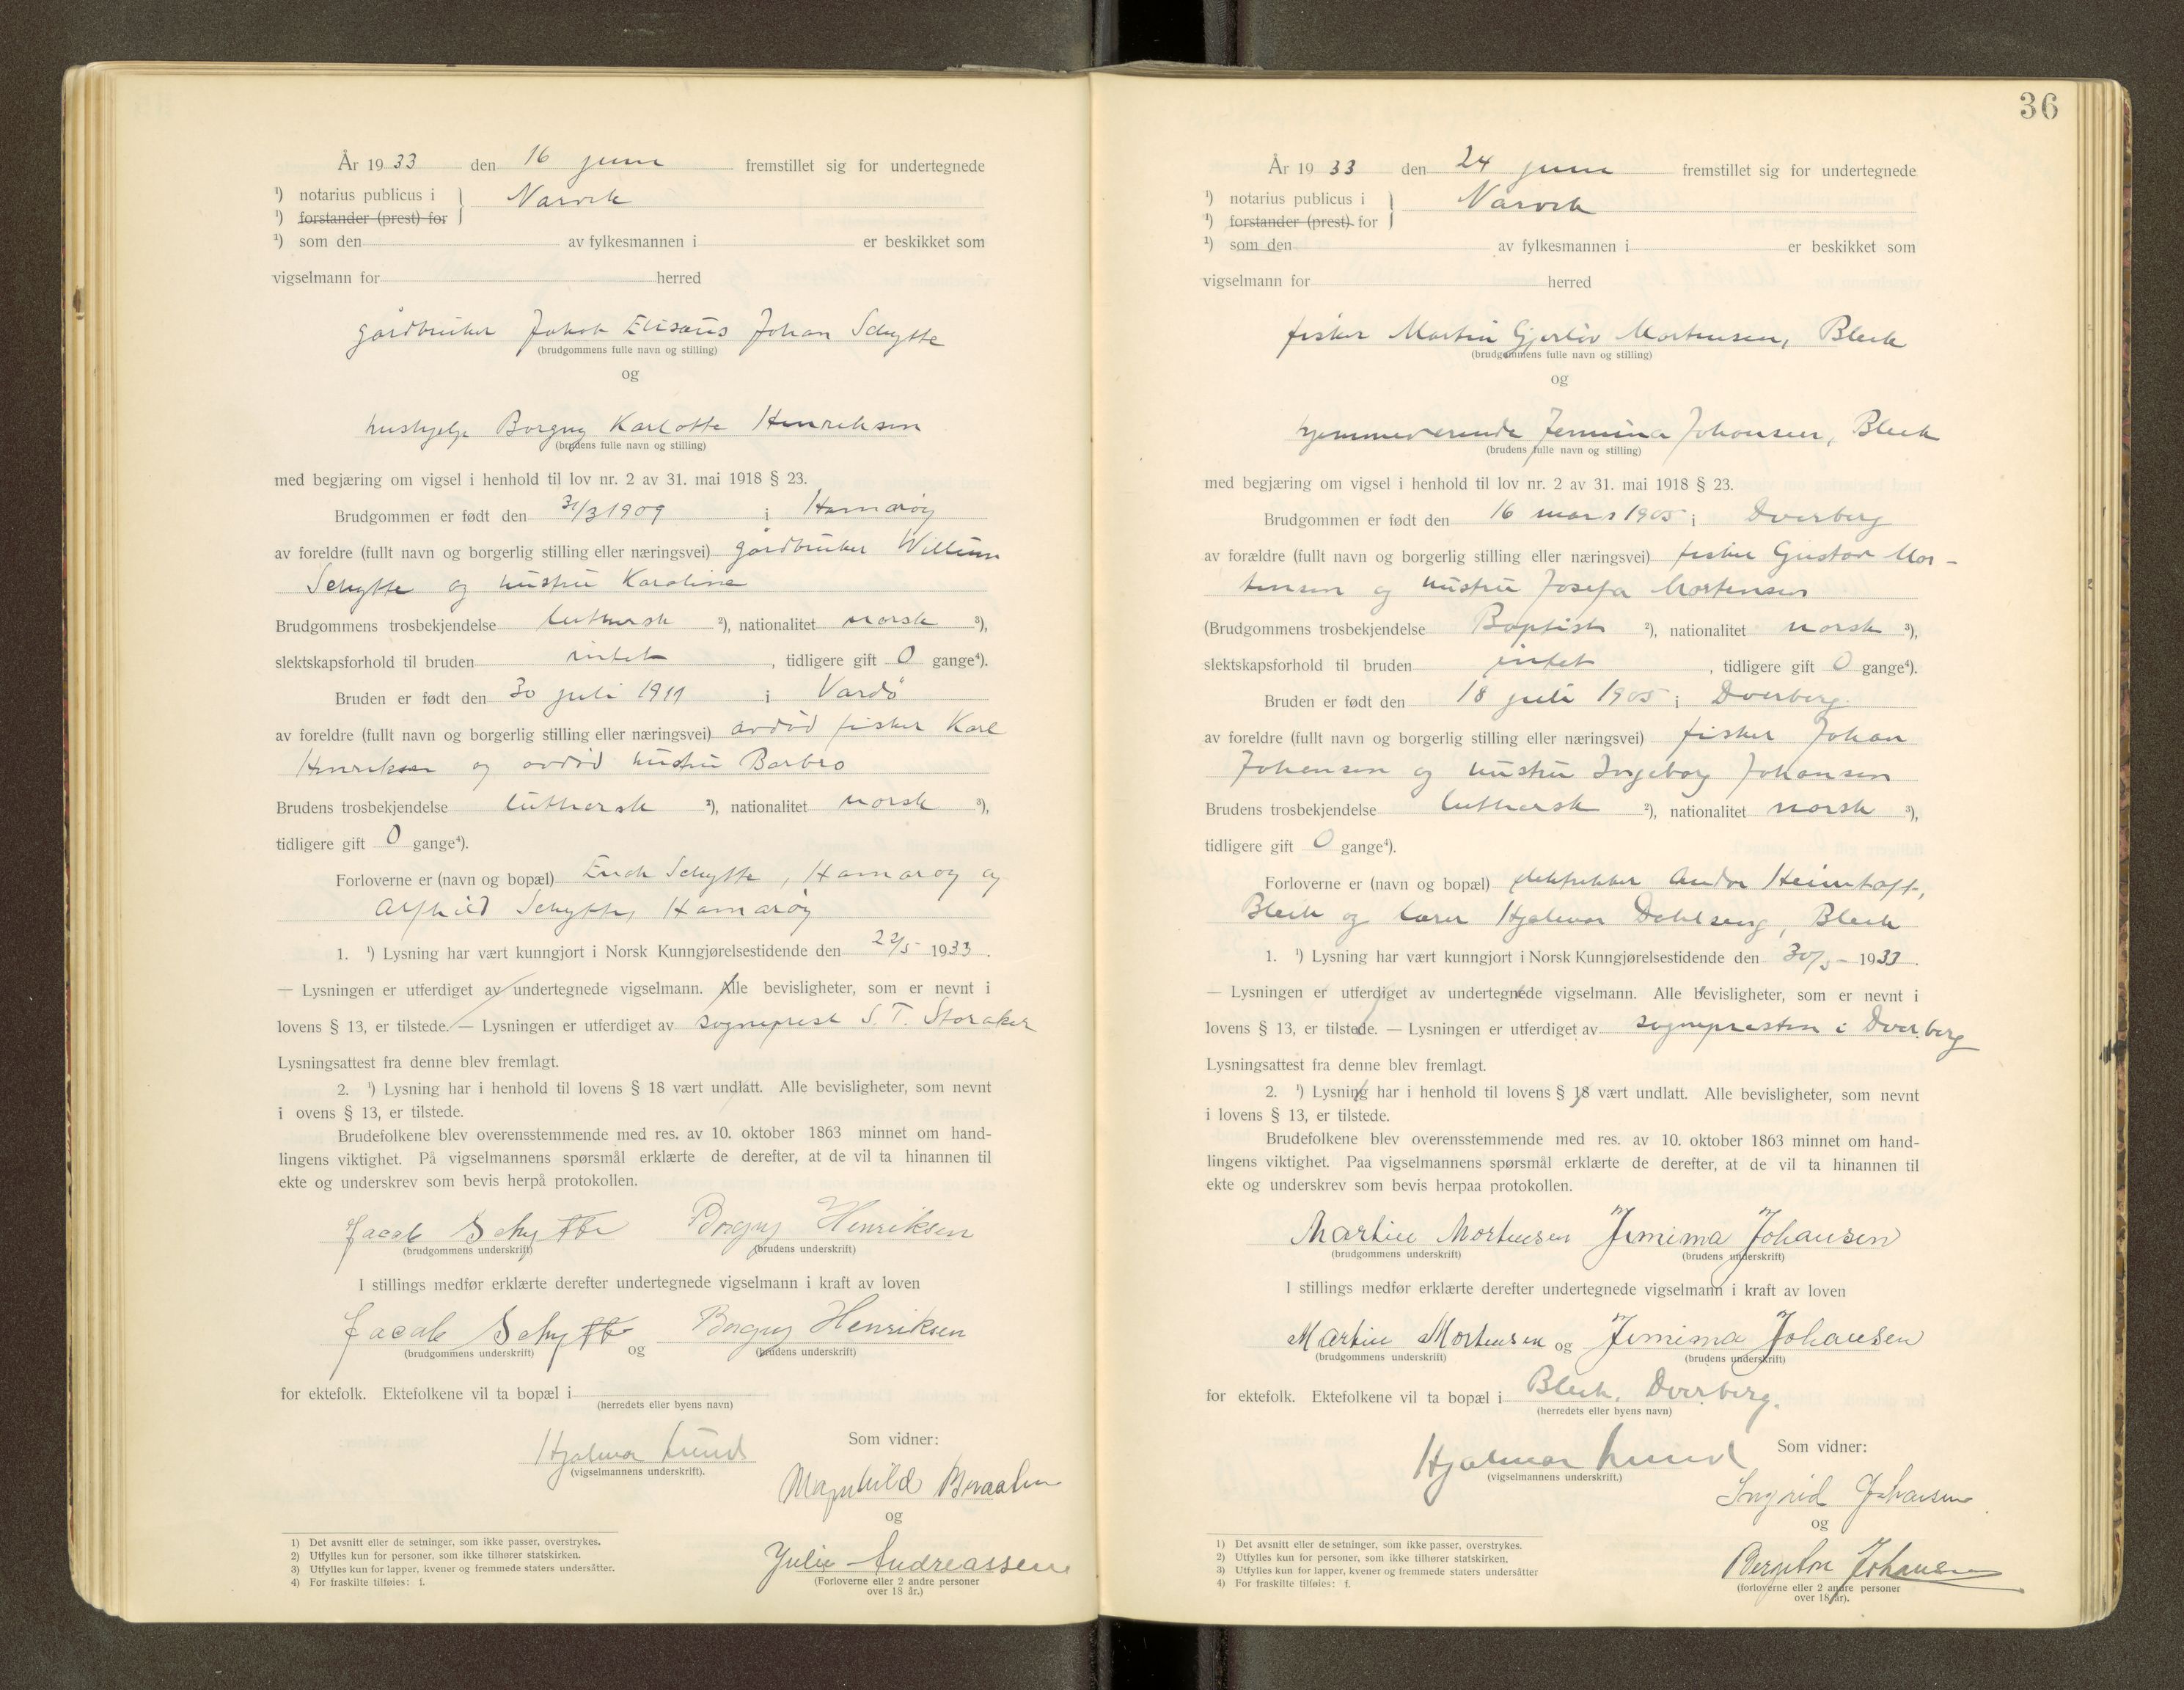 År 1933 den 16 juni fremstillet sig for undertegnede
¹) notarius publicus i } Narvik
¹) forstander (prest) for
¹) som den av fylkesmannen i er beskikket som
vigselmann for herred
gårdbruker Jakob Elisæus Johan Schytte
(brudgommens fulle navn og stilling)
og
hushjelp Borgny Karlotte Henriksen
(brudens fulle navn og stilling)
med begjæring om vigsel i henhold til lov nr. 2 av 31. mai 1918 § 23.
Brudgommen er født den 31/3 1909 i Hamarøy
av foreldre (fullt navn og borgerlig stilling eller næringsvei) gårdbruker Willum
Schytte og hustru Karoline
Brudgommens trosbekjendelse luthersk ²), nationalitet norsk ³),
slektskapsforhold til bruden intet, tidligere gift 0 gange⁴).
Bruden er født den 30 juli 1911 i Vardö
av foreldre (fullt navn og borgerlig stilling eller næringsvei) avdöd fisker Karl
Henriksen og avdöd hustru Barbro
Brudens trosbekjendelse luthersk ²), nationalitet norsk ³),
tidligere gift 0 gange⁴).
Forloverne er (navn og bopæl) Schytte, Hamarøy og
Alfhild Schytte, Hamarøy
1. ¹) Lysning har vært kunngjort i Norsk Kunngjørelsestidende den 22/5 1933.
— Lysningen er utferdiget av undertegnede vigselmann. Alle bevisligheter, som er nevnt i
lovens § 13, er tilstede. — Lysningen er utferdiget av sogneprest S. T. Storaker
Lysningsattest fra denne blev fremlagt.
2. ¹) Lysning har i henhold til lovens § 18 vært undlatt. Alle bevisligheter, som nevnt
i ovens § 13, er tilstede.
Brudefolkene blev overensstemmende med res. av 10. oktober 1863 minnet om hand-
lingens viktighet. På vigselmannens spørsmål erklærte de derefter, at de vil ta hinannen til
ekte og underskrev som bevis herpå protokollen.
Jacob Schytte Borgny Henriksen
(brudgommens underskrift) (brudens underskrift)
I stillings medfør erklærte derefter undertegnede vigselmann i kraft av loven
Jacob Schytte og Borgny Henriksen
(brudgommens underskrift) (brudens underskrift)
for ektefolk. Ektefolkene vil ta bopæl i
(herredets eller byens navn)
Hjalmar Lund
(vigselmannens underskrift).
Som vidner:
Magnhild
og
Julie Andreassen
(Forloverne eller 2 andre personer
over 18 år.)
1) Det avsnitt eller de setninger, som ikke passer, overstrykes.
2) Utfylles kun for personer, som ikke tilhører statskirken.
3) Utfylles kun for lapper, kvener og fremmede staters undersåtter.
4) For fraskilte tilføies: f.
36
År 1933 den 24 juni fremstillet sig for undertegnede
¹) notarius publicus i } Narvik
¹) forstander (prest) for
¹) som den av fylkesmannen i er beskikket som
vigselmann for herred
fisker Martin Gjerløv Mortensen, Bleik
(brudgommens fulle navn og stilling)
og
hjemmeværende Jemima Johansen, Bleik
(brudens fulle navn og stilling)
med begjæring om vigsel i henhold til lov nr. 2 av 31. mai 1918 § 23.
Brudgommen er født den 16 mars 1905 i Dverberg
av forældre (fullt navn og borgerlig stilling eller næringsvei) fisker Gustav Mor-
tensen og hustru Josefa Mortensen
(Brudgommens trosbekjendelse Baptist ²), nationalitet norsk ³),
slektskapsforhold til bruden intet, tidligere gift 0 gange⁴).
Bruden er født den 18 juli 1905 i Dverberg.
av foreldre (fullt navn og borgerlig stilling eller næringsvei) fisker Johan
Johansen og hustru Ingeborg Johansen
Brudens trosbekjendelse luthersk ²), nationalitet norsk ³),
tidligere gift 0 gange⁴).
Forloverne er (navn og bopæl) Andor
Bleik og lærer Hjalmar Dahlseng, Bleik
1. ¹) Lysning har vært kunngjort i Norsk Kunngjørelsestidende den 30/5 – 1933.
— Lysningen er utferdiget av undertegnede vigselmann. Alle bevisligheter, som er nevnt i
lovens § 13, er tilstede. — Lysningen er utferdiget av sognepresten i Dverberg
Lysningsattest fra denne blev fremlagt.
2. ¹) Lysning har i henhold til lovens § 18 vært undlatt. Alle bevisligheter, som nevnt
i lovens § 13, er tilstede.
Brudefolkene blev overensstemmende med res. av 10. oktober 1863 minnet om hand-
lingens viktighet. Paa vigselmannens spørsmål erklærte de derefter, at de vil ta hinannen til
ekte og underskrev som bevis herpaa protokollen.
Martin Mortensen Jemima Johansen
(brudgommens underskrift) (brudens underskrift)
I stillings medfør erklærte derefter undertegnede vigselmann i kraft av loven
Martin Mortensen og Jemima Johansen
(brudgommens underskrift) (brudens underskrift)
for ektefolk. Ektefolkene vil ta bopæl i Bleik, Dverberg.
(herredets eller byens navn)
Hjalmar Lund
(vigselmannens underskrift.)
Som vidner:
Ingrid Johansen
og
Johansen
(forloverne eller 2 andre personer
over 18 år).
1) Det avsnitt eller de setninger, som ikke passer, overstrykes.
2) Utfylles kun for personer, som ikke tilhører statskirken.
3) Utfylles kun for lapper, kvener og fremmede staters undersåtter
4) For fraskilte tilføies: f.